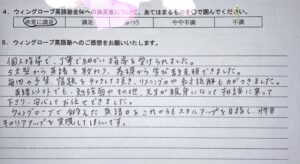 4. ウィングローブ英語塾全体への満足度について、あてはまるものを○で囲んでください。
非常に満足 満足 ふつう やや不満 不満
5. ウィングローブ英語塾へのご感想をお願いいたします。
個人指導で、丁寧できめ細かい指導を受けられました。
5文型から英語を教わり、基礎から学び直しを徹底できました。
毎回の予習、復習をチェックして頂き、リスニングや長文読解も力がつきました。
英語というだけでも、勉強面やその他、先生が親身になって相談に乗って
下さり、安心してお任せできました。
ウィングローブで教えた英語力をこれからもスキルアップを目指し、将来
キャリアアップを実現してほしいです。